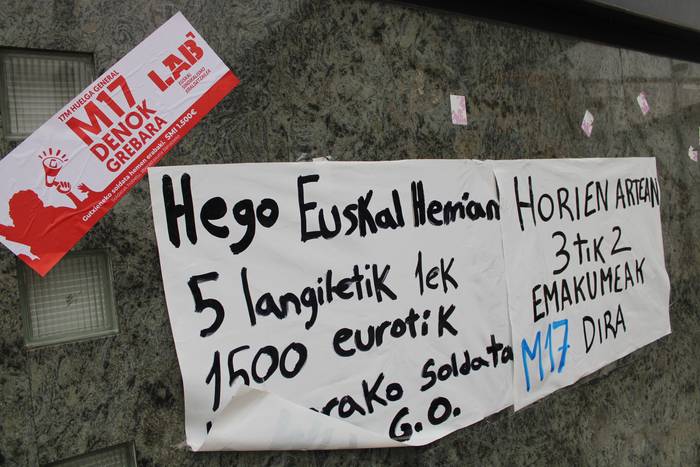 17M HUELGA GENERAL
M17
DENOK
GREBARA
Gutxieneko soldata hemen erabaki. SMI 1.500€
LAB
EUSKAL
SINDIKALISMO
ERALDATZAILEA
Hego Euskal Herrian
5 langiletik 1ek
1500 eurotik
rako soldata
G.O.
HORIEN ARTEAN
3tik2
EMAKUMEAK
DIRA
M17